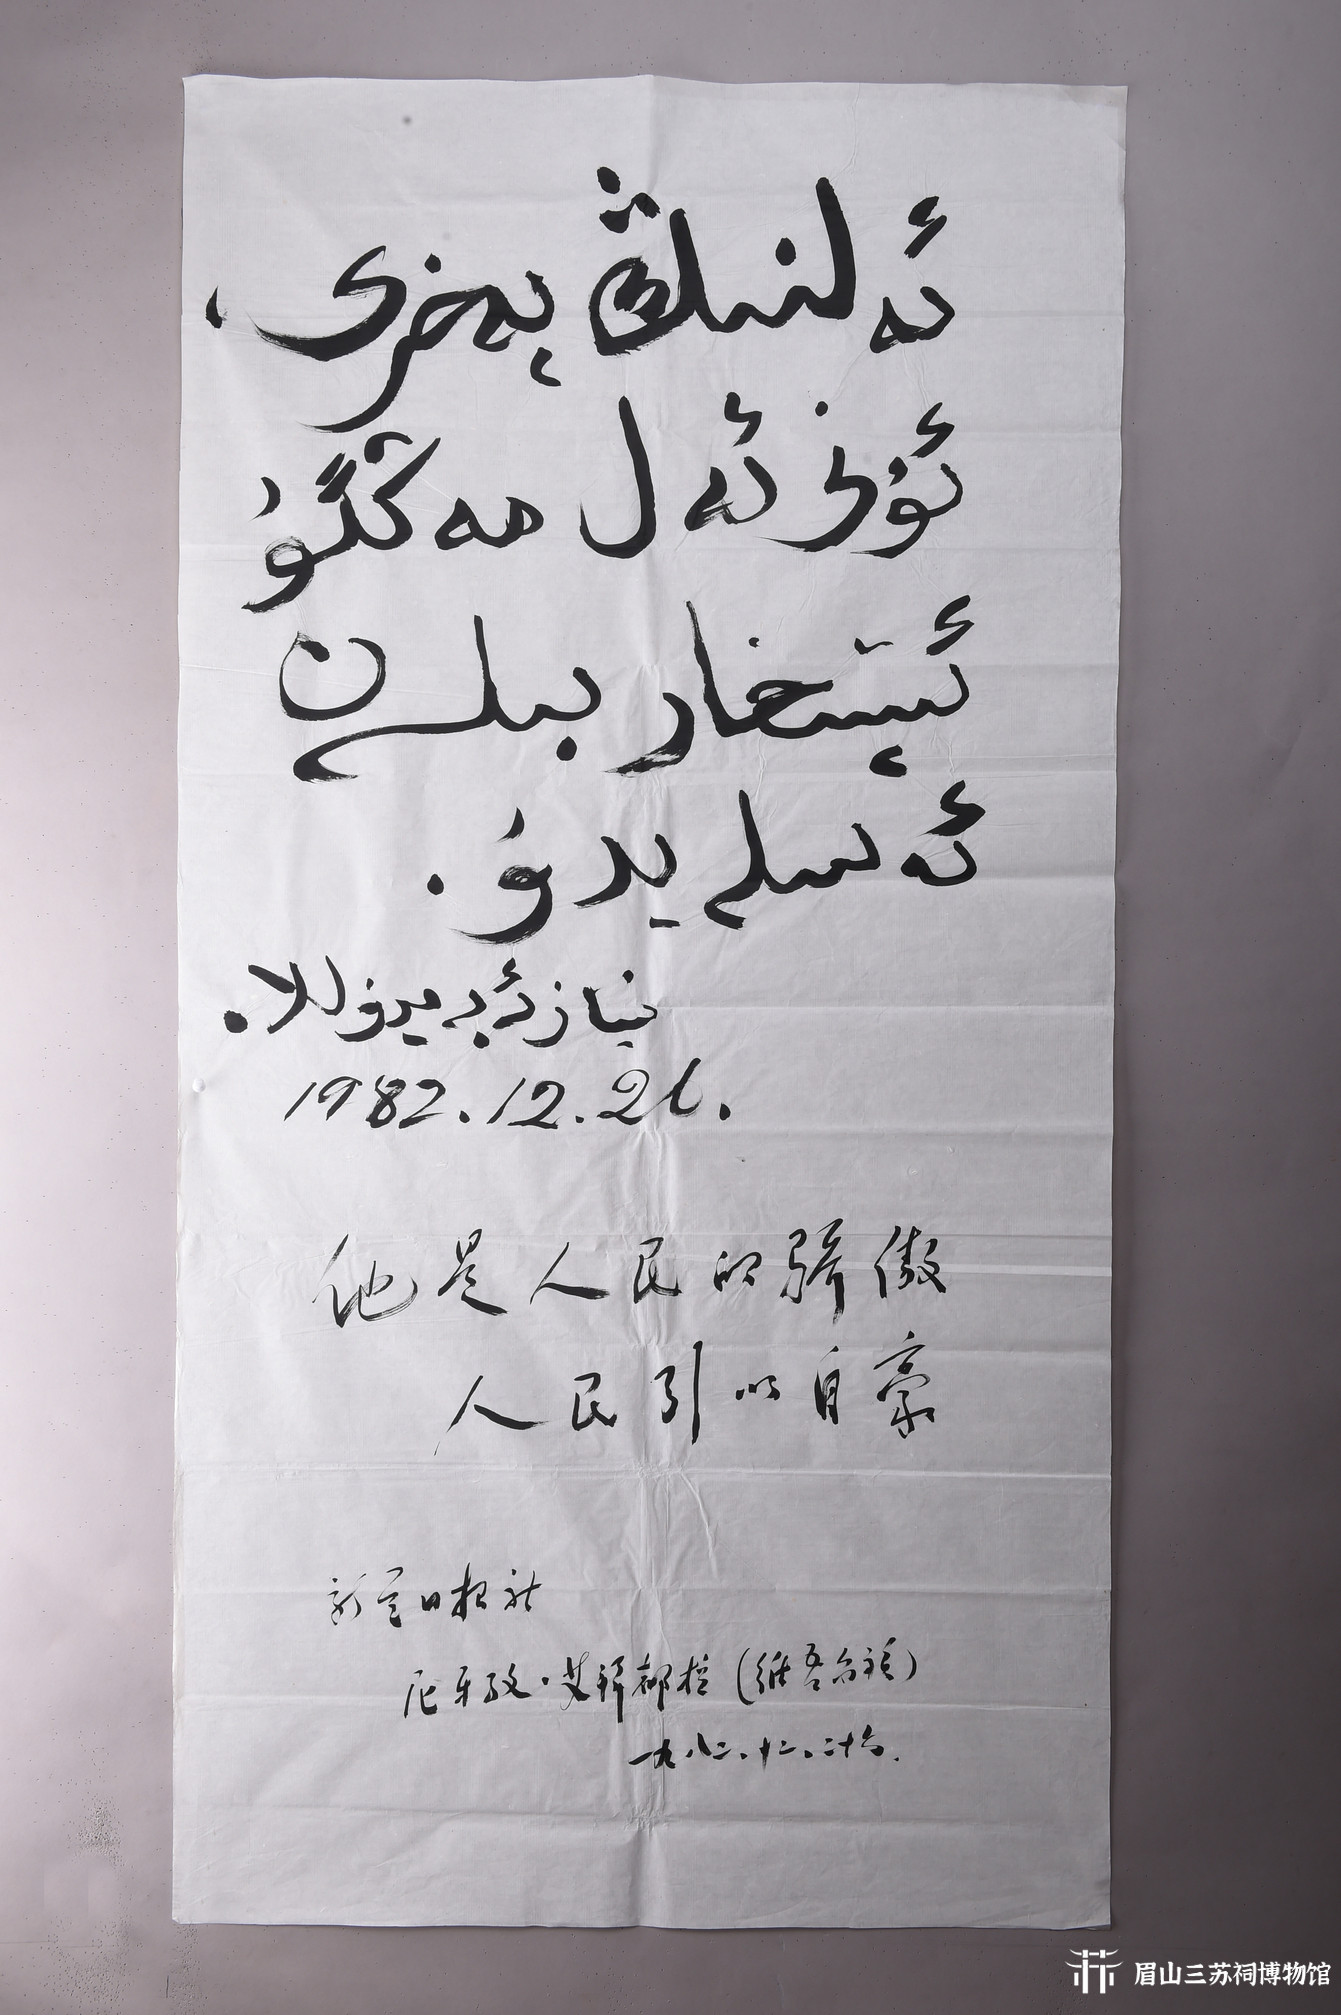 ئەلنىڭ پەخرى،
ئۇنى ئەل مەڭگۈ
ئىپتىخار بىلەن
ئەسلەيدۇ.
نىياز ئەبەيدۇللا.
1982.12.26.
他是人民的骄傲
人民引以自豪
新疆日报社
尼牙孜·艾拜都拉（维吾尔族）
一九八二、十二、二十六.
眉山三苏祠博物馆